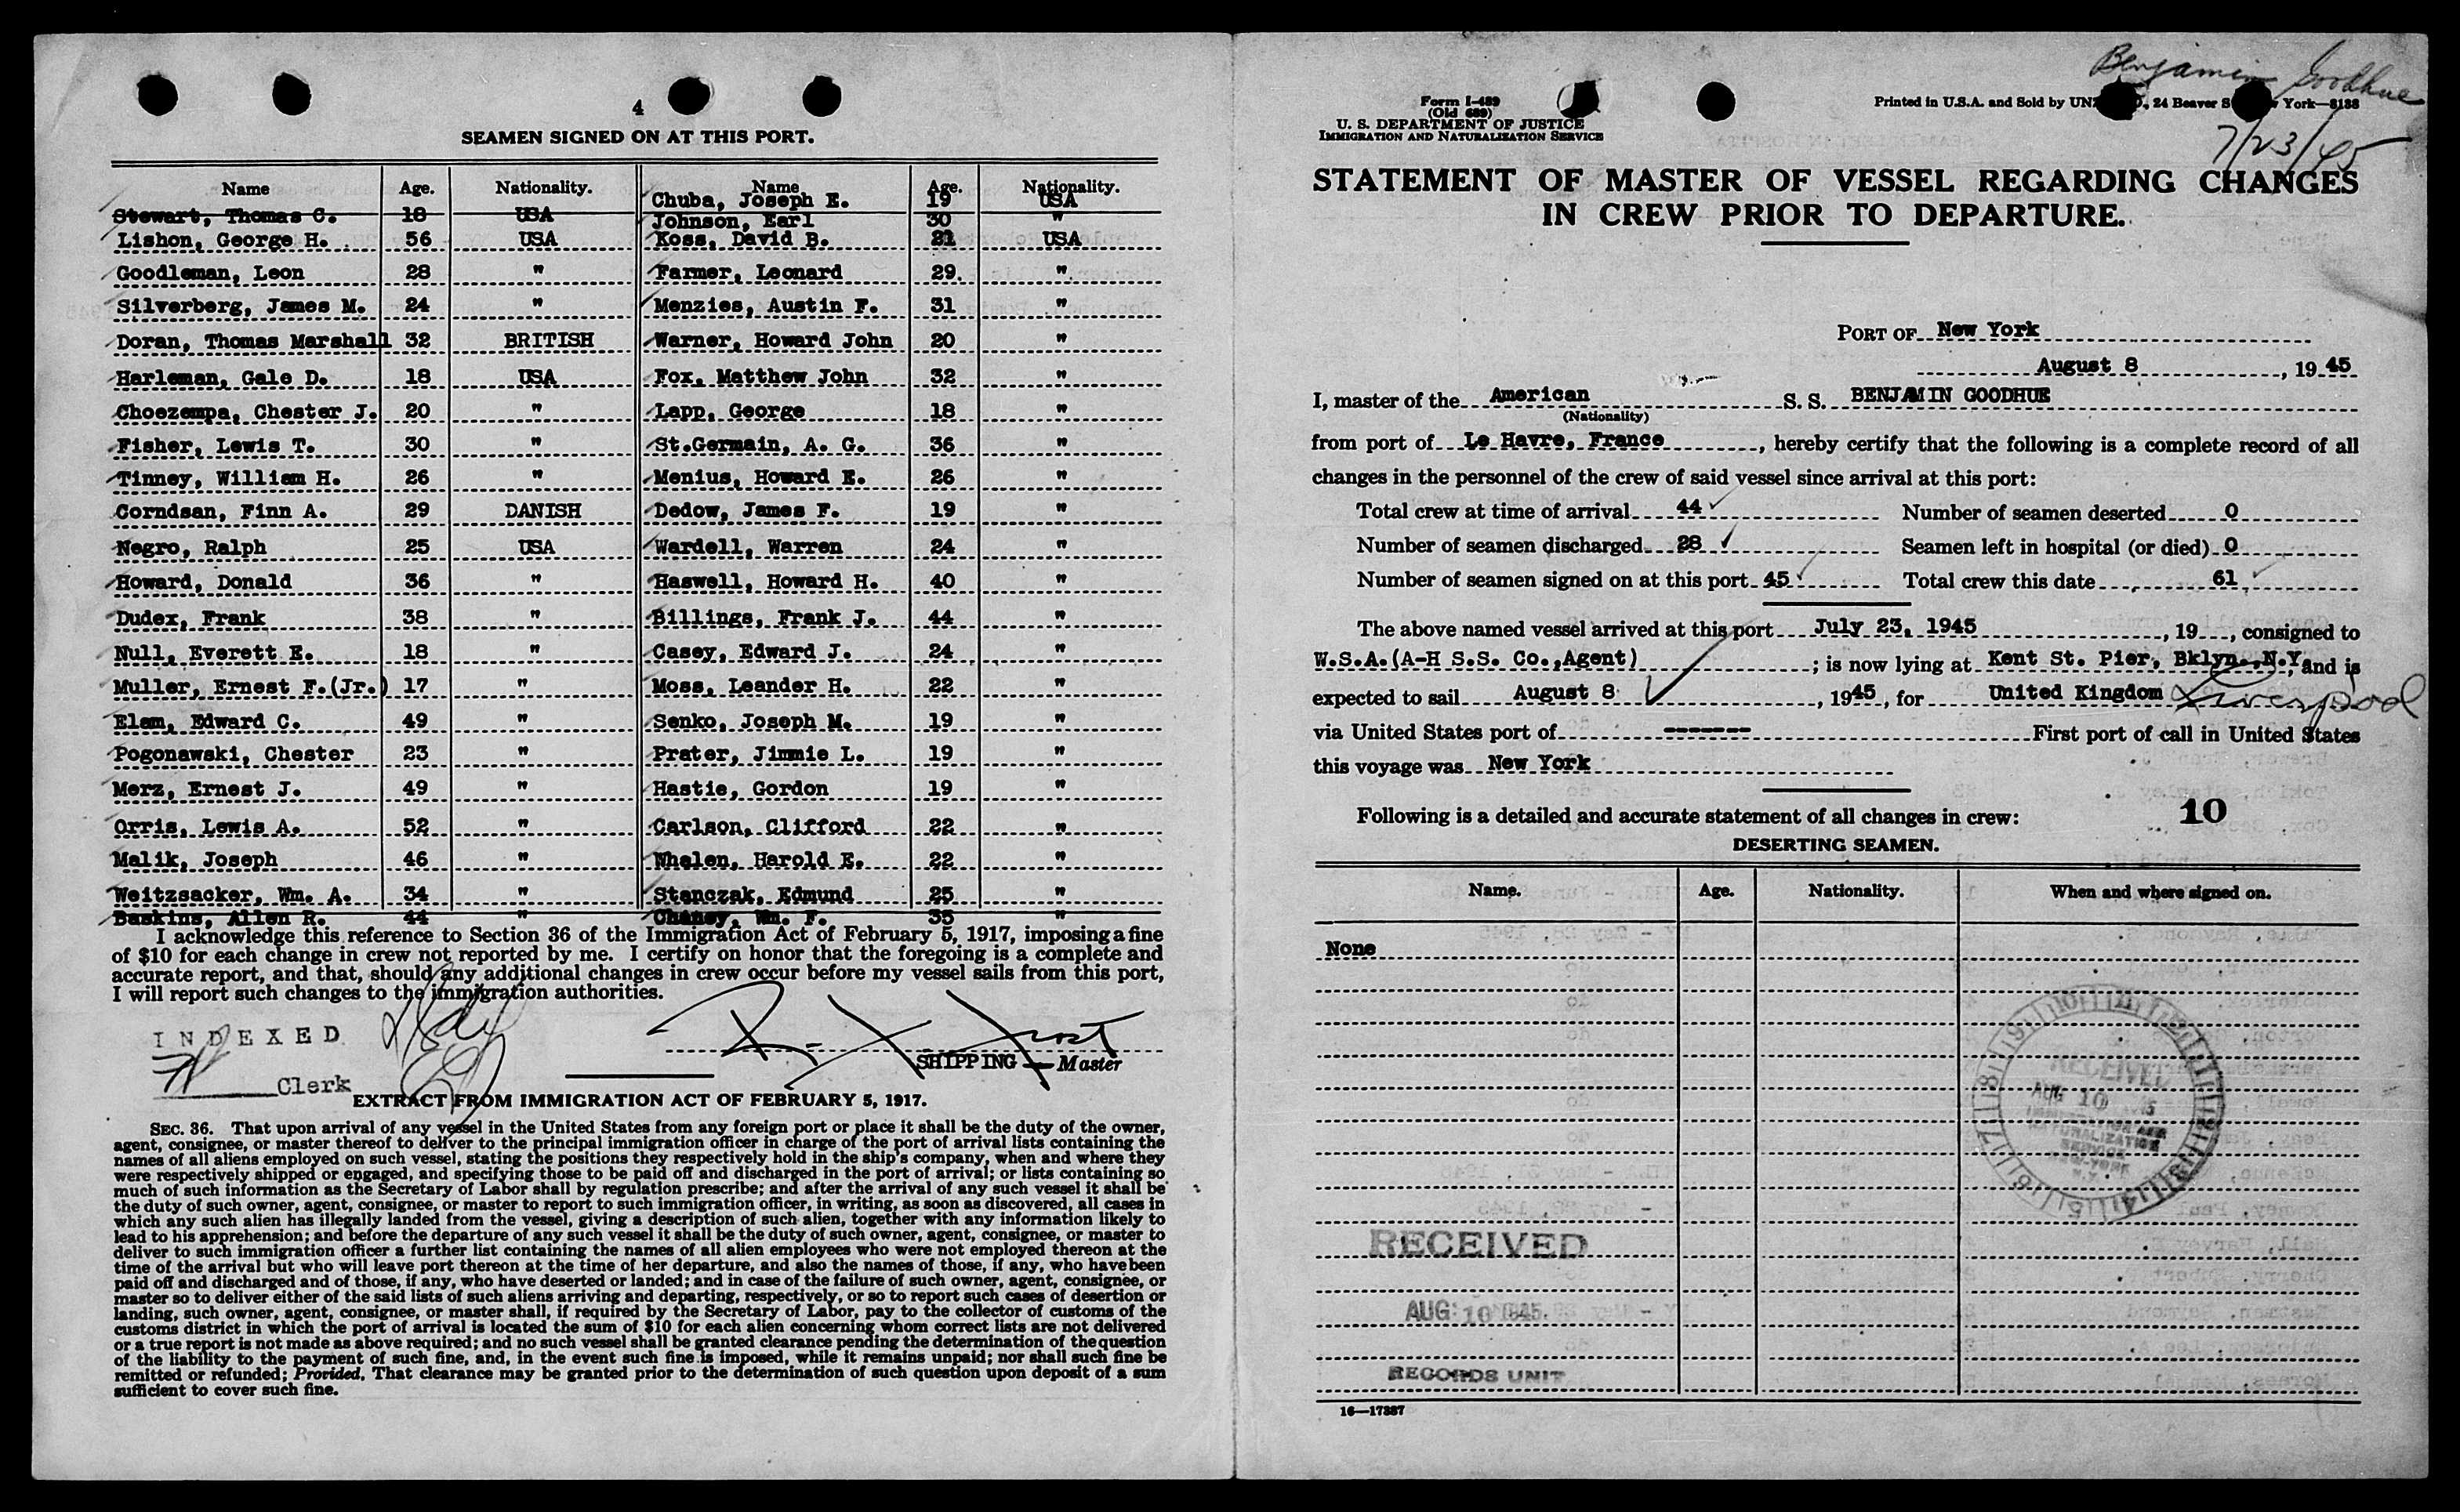 4
SEAMEN SIGNED ON AT THIS PORT.
Name Age. Nationality. Name Age. Nationality.
Chuba, Joseph E. 19 USA
Stewart, Thomas C. 18 USA Johnson, Earl 30 "
Lishon, George H. 56 USA Koss, David B. 21 USA
Goodleman, Leon 28 " Farmer, Leonard 29. "
Silverberg, James M. 24 " Menzies, Austin F. 31 "
Doran, Thomas Marshall 32 BRITISH Warner, Howard John 20 "
Harleman, Gale D. 18 USA Fox, Matthew John 32 "
Choezempa, Chester J. 20 " Lapp, George 18 "
Fisher, Lewis T. 30 " St.Germain, A. G. 36 "
Tinney, William H. 26 " Menius, Howard E. 26 "
Corndsan, Finn A. 29 DANISH Dedow, James F. 19 "
Negro, Ralph 25 USA Wardell, Warren 24 "
Howard, Donald 36 " Haswell, Howard H. 40 "
Dudex, Frank 38 " Billings, Frank J. 44 "
Null, Everett E. 18 " Casey, Edward J. 24 "
Muller, Ernest F.(Jr.) 17 " Moss, Leander H. 22 "
Elam, Edward C. 49 " Senko, Joseph M. 19 "
Pogonawski, Chester 23 " Prater, Jimmie L. 19 "
Merz, Ernest J. 49 " Hastie, Gordon 19 "
Orris, Lewis A. 52 " Carlson, Clifford 22 "
Malik, Joseph 46 " Whalen, Harold E. 22 "
Weitzsacker, Wm. A. 34 " Stanczak, Edmund 25 "
Baskins, Allen R. 44 " Chaney, Wm. F. 35 "
I acknowledge this reference to Section 36 of the Immigration Act of February 5, 1917, imposing a fine
of $10 for each change in crew not reported by me. I certify on honor that the foregoing is a complete and
accurate report, and that, should any additional changes in crew occur before my vessel sails from this port,
I will report such changes to the immigration authorities.
INDEXED
SHIPPING Master
Clerk
EXTRACT FROM IMMIGRATION ACT OF FEBRUARY 5, 1917.
SEC. 36. That upon arrival of any vessel in the United States from any foreign port or place it shall be the duty of the owner,
agent, consignee, or master thereof to deliver to the principal immigration officer in charge of the port of arrival lists containing the
names of all aliens employed on such vessel, stating the positions they respectively hold in the ship's company, when and where they
were respectively shipped or engaged, and specifying those to be paid off and discharged in the port of arrival; or lists containing so
much of such information as the Secretary of Labor shall by regulation prescribe; and after the arrival of any such vessel it shall be
the duty of such owner, agent, consignee, or master to report to such immigration officer, in writing, as soon as discovered, all cases in
which any such alien has illegally landed from the vessel, giving a description of such alien, together with any information likely to
lead to his apprehension; and before the departure of any such vessel it shall be the duty of such owner, agent, consignee, or master to
deliver to such immigration officer a further list containing the names of all alien employees who were not employed thereon at the
time of the arrival but who will leave port thereon at the time of her departure, and also the names of those, if any, who have been
paid off and discharged and of those, if any, who have deserted or landed; and in case of the failure of such owner, agent, consignee, or
master so to deliver either of the said lists of such aliens arriving and departing, respectively, or so to report such cases of desertion or
landing, such owner, agent, consignee, or master shall, if required by the Secretary of Labor, pay to the collector of customs of the
customs district in which the port of arrival is located the sum of $10 for each alien concerning whom correct lists are not delivered
or a true report is not made as above required; and no such vessel shall be granted clearance pending the determination of the question
of the liability to the payment of such fine, and, in the event such fine is imposed, while it remains unpaid; nor shall such fine be
remitted or refunded; Provided, That clearance may be granted prior to the determination of such question upon deposit of a sum
sufficient to cover such fine.
Benjamin Goodhue
7/23/45
Form I-489
(Old 689)
U. S. DEPARTMENT OF JUSTICE
IMMIGRATION AND NATURALIZATION SERVICE
Printed in U.S.A. and Sold by 24 Beaver York—8138
STATEMENT OF MASTER OF VESSEL REGARDING CHANGES
IN CREW PRIOR TO DEPARTURE.
PORT OF New York
August 8, 1945
I, master of the American S. S. BENJAMIN GOODHUE
(Nationality)
from port of Le Havre, France, hereby certify that the following is a complete record of all
changes in the personnel of the crew of said vessel since arrival at this port:
Total crew at time of arrival 44 Number of seamen deserted 0
Number of seamen discharged 28 Seamen left in hospital (or died) 0
Number of seamen signed on at this port 45 Total crew this date 61
The above named vessel arrived at this port July 23, 1945, 19, consigned to
W.S.A.(A-H S.S. Co.,Agent); is now lying at Kent St. Pier, Bklyn.,N.Y, and is
expected to sail August 8, 1945, for United Kingdom Liverpool
via United States port of ------- First port of call in United States
this voyage was New York
Following is a detailed and accurate statement of all changes in crew: 10
DESERTING SEAMEN.
Name. Age. Nationality. When and where signed on.
None
RECEIVED
AUG 10
IMMIGRATION AND
NATURALIZATION
SERVICE
NEW YORK
N.Y.
RECEIVED
AUG 10 1945
RECORDS UNIT
16—17387